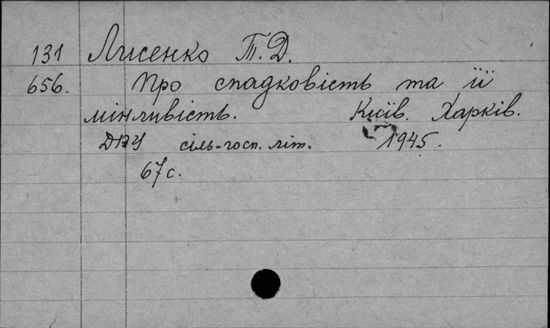 131 Лисенко Т. Д.
656. Про спадковість та її
мінливість. Київ. Харків.
ДВУ сіль-госп. літ. 1945.
67 с.